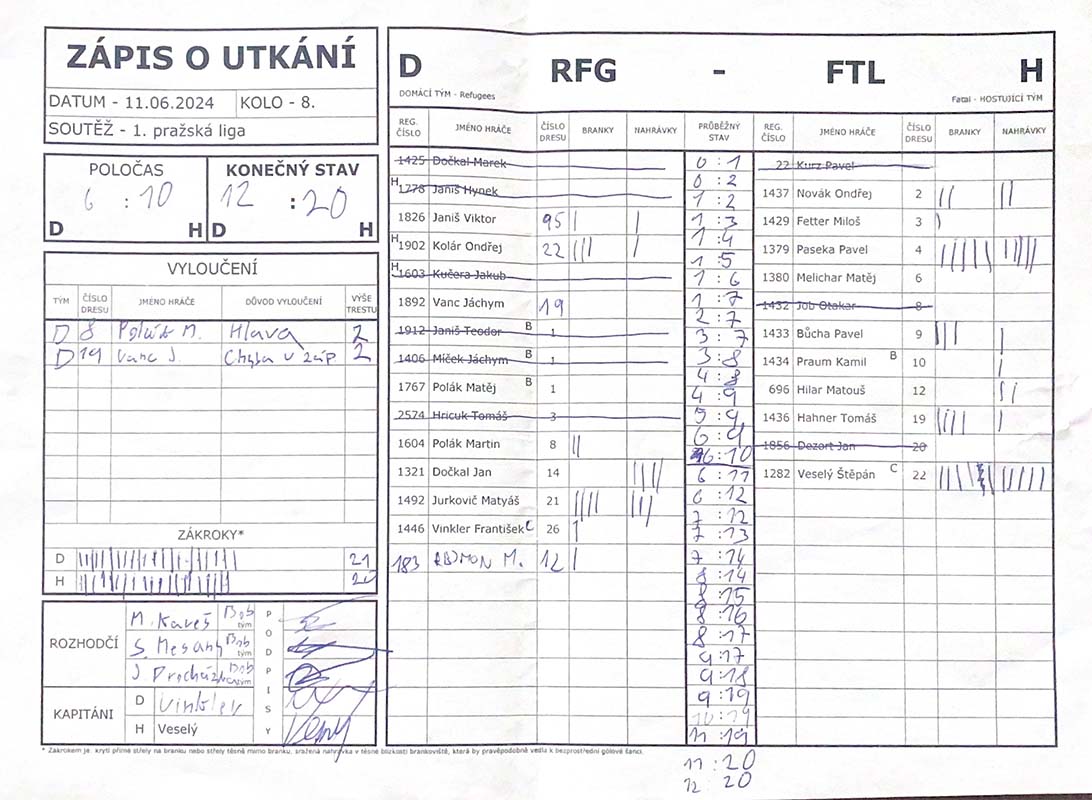 ZÁPIS O UTKÁNÍ
DATUM - 11.06.2024 KOLO - 8.
SOUTĚŽ - 1. pražská liga
POLOČAS KONEČNÝ STAV
6 : 10 12 : 20
D H D H
VYLOUČENÍ
TÝM ČÍSLO DRESU JMÉNO HRÁČE DŮVOD VYLOUČENÍ VÝŠE TRESTU
D 8 Polák M. Hlava 2
D 19 Vanc J. Chyba v záp 2
ZÁKROKY*
D 21
H 20
ROZHODČÍ
M. Kareš Bob tým
S. Mesany Bob tým
J. Procházka Bob tým
PODPISY
KAPITÁNI
D Vinkler
H Veselý
D RFG - FTL H
DOMÁCÍ TÝM - Refugees Fatal - HOSTUJÍCÍ TÝM
REG. ČÍSLO JMÉNO HRÁČE ČÍSLO DRESU BRANKY NAHRÁVKY PRŮBĚŽNÝ STAV REG. ČÍSLO JMÉNO HRÁČE ČÍSLO DRESU BRANKY NAHRÁVKY
1425 Dočkal Marek
H 1778 Janiš Hynek
1826 Janiš Viktor 95
H 1902 Kolár Ondřej 22
H 1603 Kučera Jakub
1892 Vanc Jáchym 19
1912 Janiš Teodor B 1
1406 Míček Jáchym B 1
1767 Polák Matěj B 1
2574 Hricuk Tomáš 3
1604 Polák Martin 8
1321 Dočkal Jan 14
1492 Jurkovič Matyáš 21
1446 Vinkler František C 26
183 M. 12
0 : 1
0 : 2
1 : 2
1 : 3
1 : 4
1 : 5
1 : 6
1 : 7
2 : 7
3 : 7
3 : 8
4 : 8
4 : 9
5 : 9
6 : 9
6 : 10
6 : 11
6 : 12
7 : 12
7 : 13
7 : 14
8 : 14
8 : 15
8 : 16
8 : 17
9 : 17
9 : 18
9 : 19
10 : 19
11 : 19
11 : 20
12 : 20
22 Kurz Pavel
1437 Novák Ondřej 2
1429 Fetter Miloš 3
1379 Paseka Pavel 4
1380 Melichar Matěj 6
1432 Job Otakar 8
1433 Bůcha Pavel 9
1434 Praum Kamil B 10
696 Hilar Matouš 12
1436 Hahner Tomáš 19
1856 Dezort Jan 20
1282 Veselý Štěpán C 22
* Zákrokem je: krytí přímé střely na branku nebo střely těsně mimo branku, sražená nahrávka v těsné blízkosti brankoviště, která by pravěpodobně vedla k bezprostřední gólové šanci.